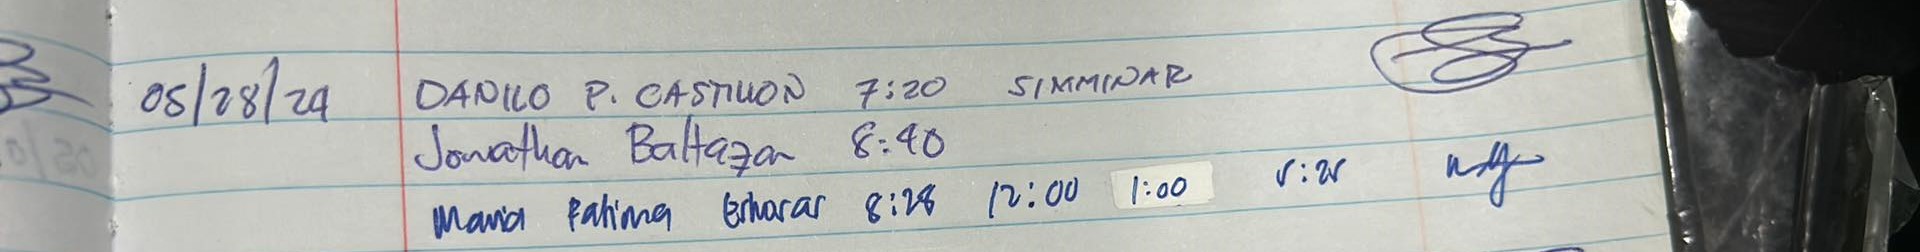 05/28/24 DANILO P. CASTILLON 7:20 SIMMINAR
Jonathan Baltazar 8:40
Maria Fatima 8:28 12:00 1:00 5:25